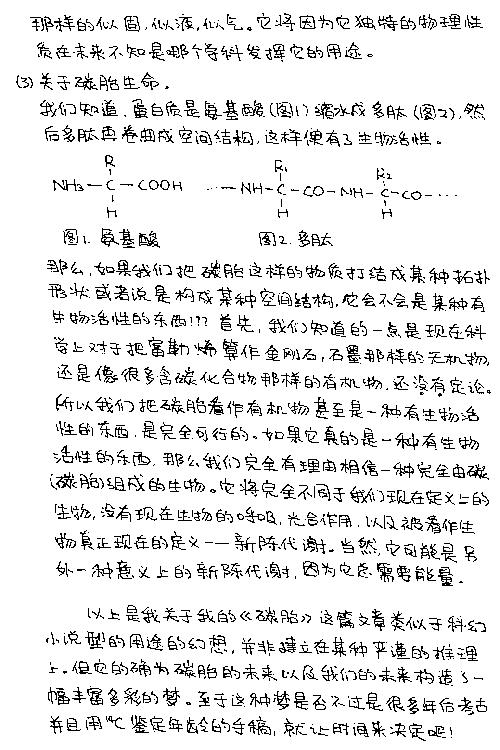 那样的似固,似液,似气。它将因为它独特的物理性
质在未来不知是哪个学科发挥它的用途。
(3) 关于碳胎生命。
我们知道,蛋白质是氨基酸(图1)缩水成多肽(图2),然
后多肽再卷曲成空间结构,这样便有了生物活性。
R R₁ R₂
NH₃—C—COOH ···—NH—C—CO—NH—C—CO—···
H H H
图1. 氨基酸 图2. 多肽
那么,如果我们把碳胎这样的物质打结成某种拓扑
形状或者说是构成某种空间结构,它会不会是某种有
生物活性的东西!?? 首先,我们知道的一点是现在科
学上对于把富勒烯算作金刚石,石墨那样的无机物,
还是像很多含碳化合物那样的有机物,还没有定论。
所以我们把碳胎看作有机物甚至是一种有生物活
性的东西,是完全可行的。如果它真的是一种有生物
活性的东西,那么我们完全有理由相信一种完全由碳
(碳胎)组成的生物。它将完全不同于我们现在定义上的
生物,没有现在生物的呼吸,光合作用,以及被看作生
物真正现在的定义——新陈代谢。当然,它可能是另
外一种意义上的新陈代谢,因为它总需要能量。
以上是我关于我的《碳胎》这篇文章类似于科幻
小说型的用途的幻想,并非建立在某种严谨的推理
上。但它的确为碳胎的未来以及我们的未来构造了一
幅丰富多彩的梦。至于这种梦是否不过是很多年后考古
并且用¹⁴C鉴定年龄的手稿,就让时间来决定吧!